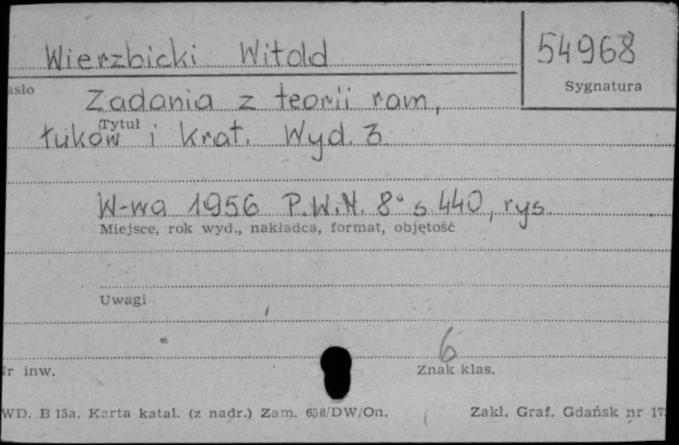 Wierzbicki Witold
54968
Sygnatura
asło
Zadania z teorii ram,
Tytuł
łuków i Krat. Wyd. 3.
W-wa 1956 P.W.N. 8° s 440, rys.
Miejsce, rok wyd., nakładca, format, objętość
Uwagi
6
Nr inw.
Znak klas.
WD. B 15a. Karta katal. (z nadr.) Zam. 658/DW/On.
Zakł. Graf. Gdańsk nr 17